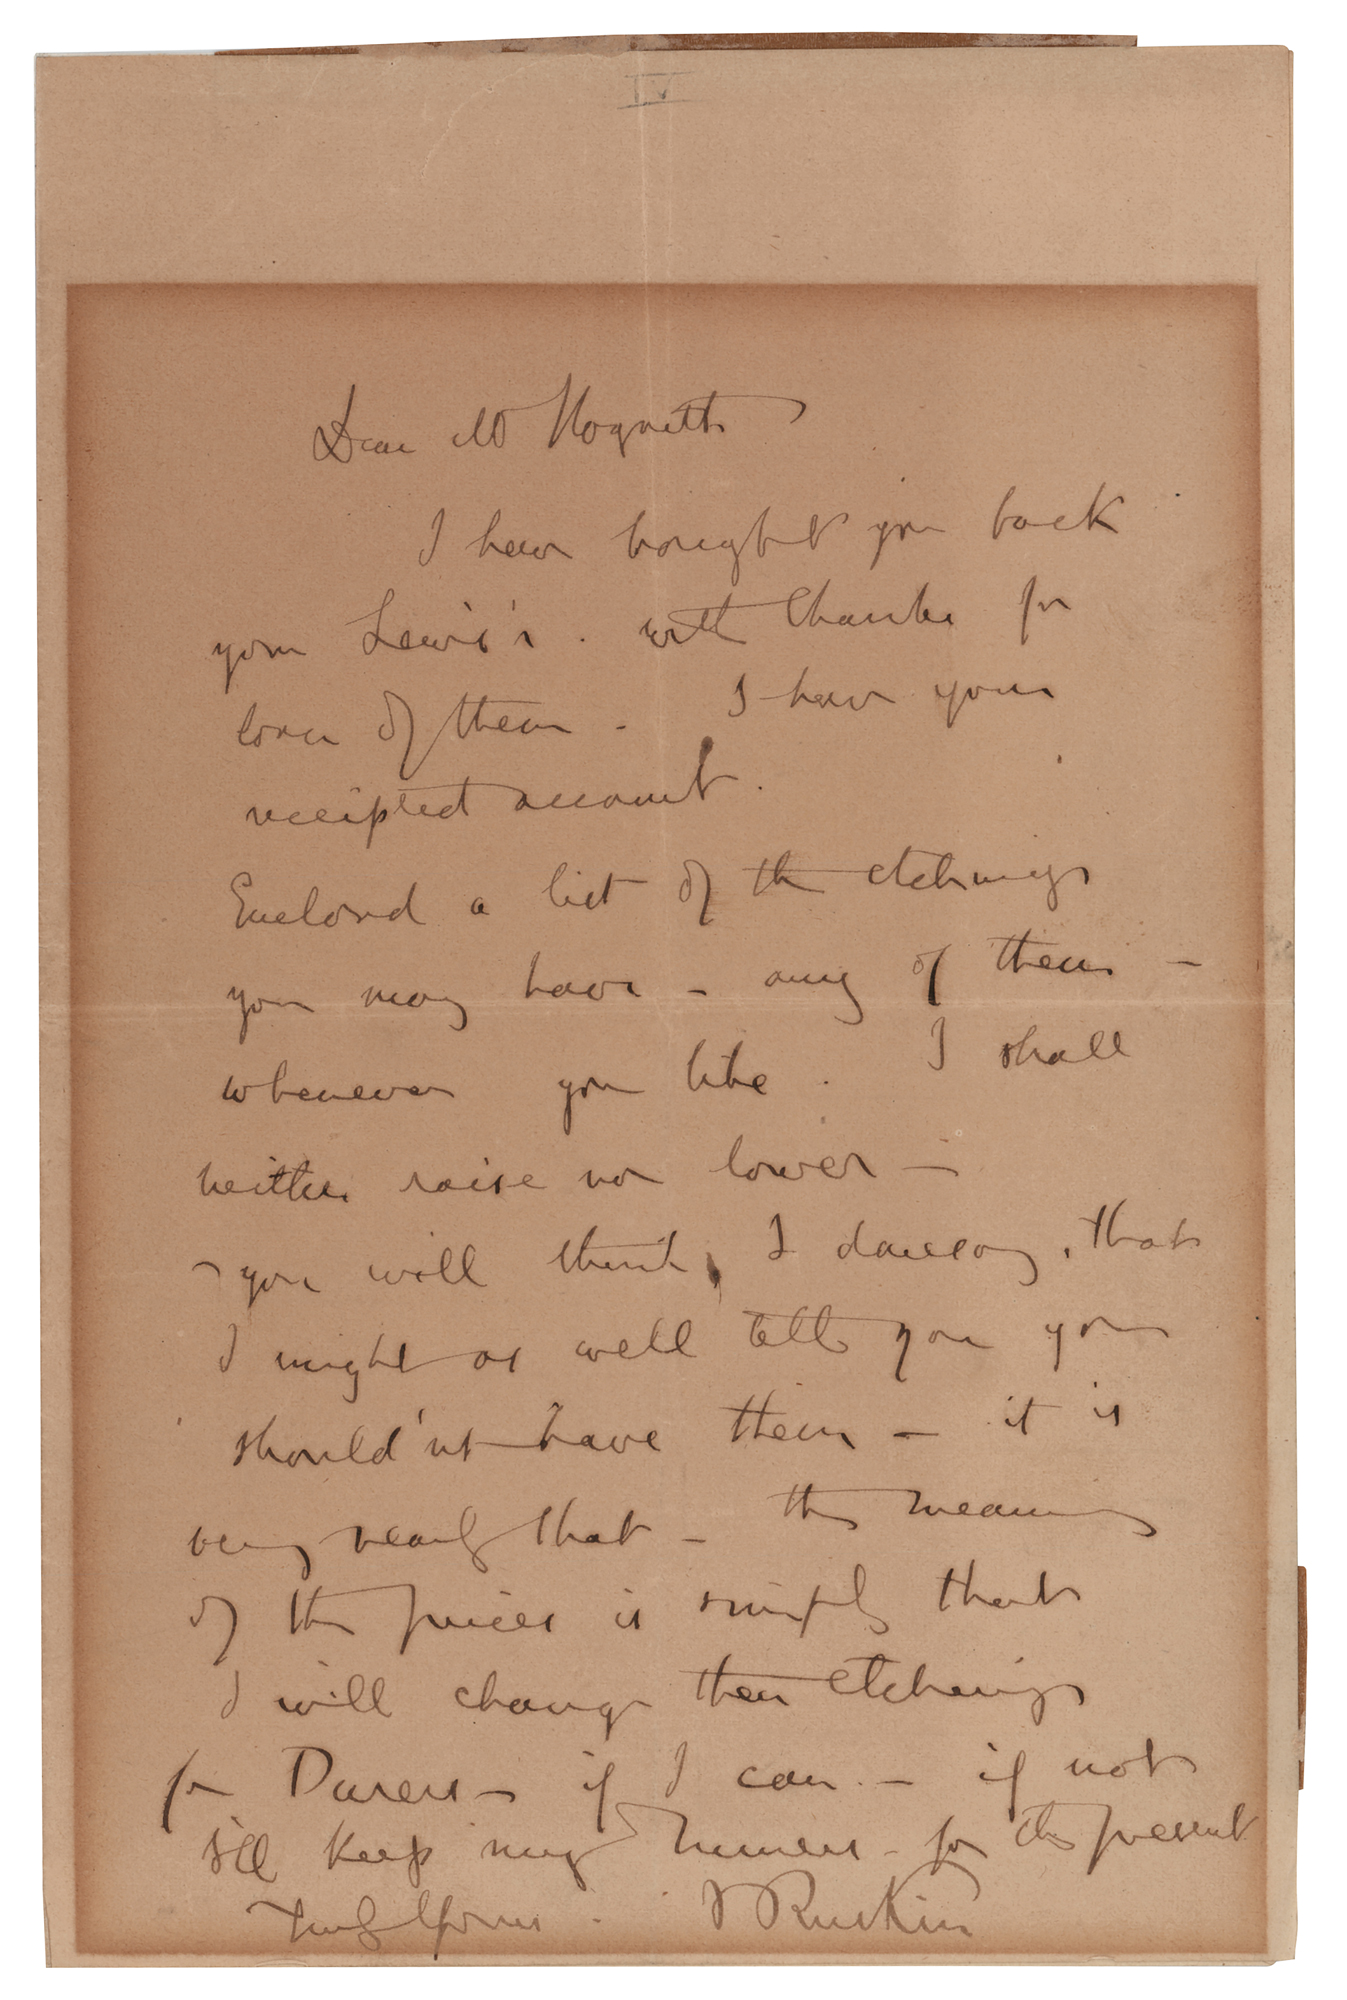 IV
Dear Mr Hogarth
I have brought you back
your Lewis's. with thanks for
loan of them - I have your
receipted account.
Enclosed a list of the etchings
you may have - any of them -
whenever you like. I shall
neither raise nor lower -
you will think, I daresay, that
I might as well tell you you
should'nt have them - it is
very nearly that - the meaning
of the prices is simply that
I will change these etchings
for Durers - if I can. - if not
I'll keep my Turners - for the present
Truly Yours. J Ruskin